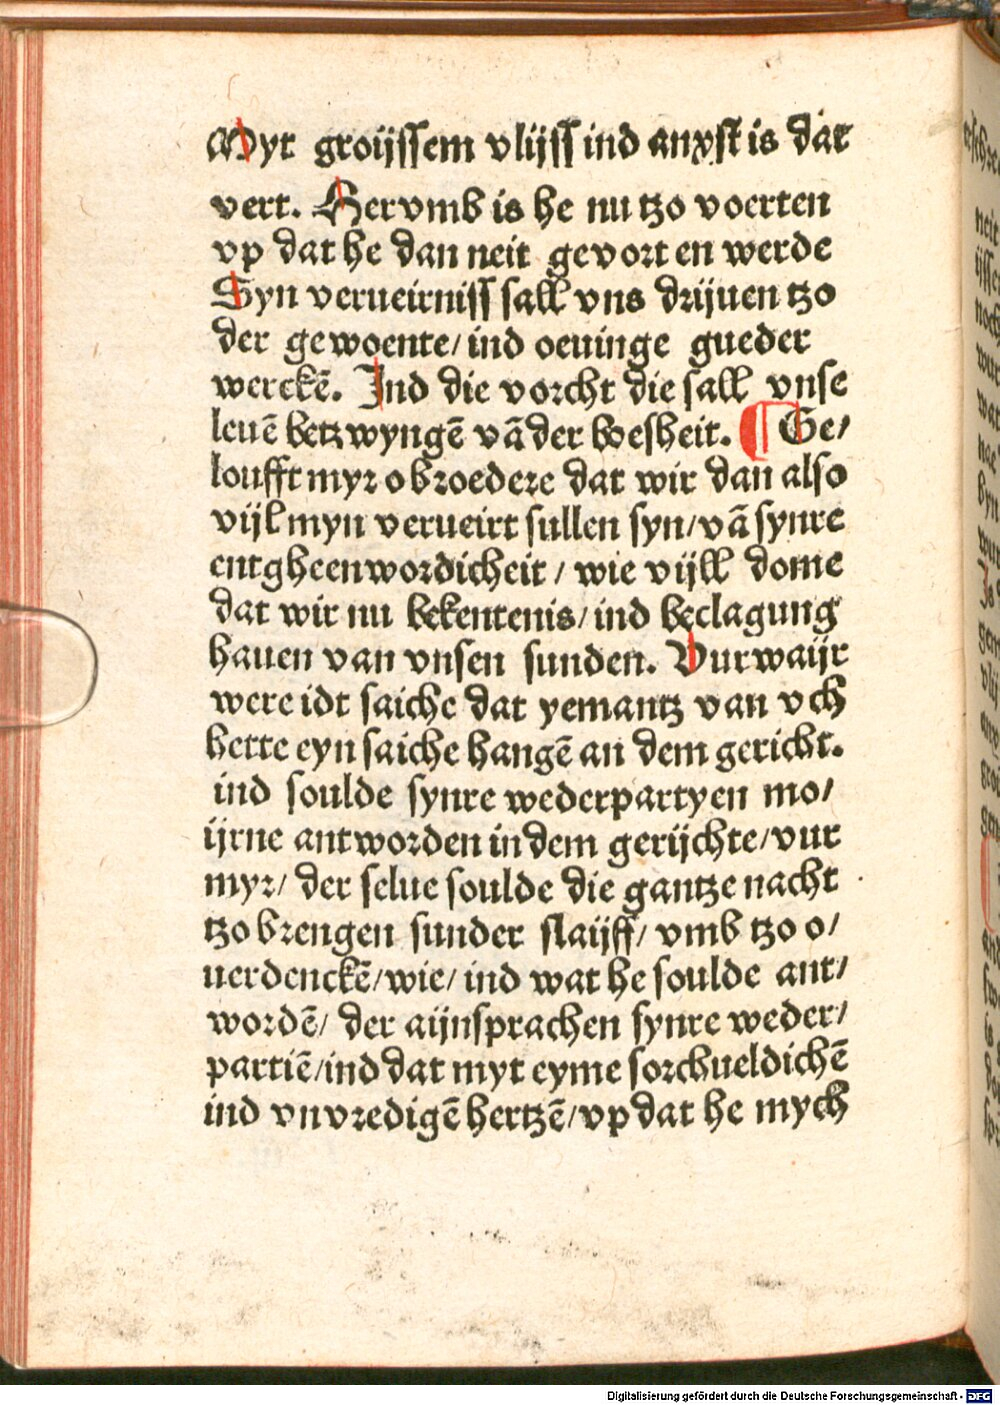 Myt groijssem vlijss ind anxst is dat
vert. Hervmb is he nu tzo voerten
vp dat he dan neit gevort en werde
Syn verueirniss sall vns drijuen tzo
der gewoente/ ind oeuinge gueder
werckē. Ind die vorcht die sall vnse
leuē betzwyngē vā der boesheit. ¶ Ge/
loufft myr o broedere dat wir dan also
vijl myn verueirt sullen syn/ vā synre
entgheenwordicheit / wie vijll dome
dat wir nu bekentenis/ ind beclagung
hauen van vnsen sunden. Vurwair
were idt saiche dat yemantz van vch
hette eyn saiche hangē an dem gericht.
ind soulde synre wederpartyen mo/
ijrne antworden in dem gerijchte/ vur
myr/ der selue soulde die gantze nacht
tzo brengen sunder slaijff/ vmb tzo o/
uerdenckē/ wie/ ind wat he soulde ant/
wordē/ der aijnsprachen synre weder/
partiē/ ind dat myt eyme sorchueldichē
ind vnvredigē hertzē/ vp dat he mych
Digitalisierung gefördert durch die Deutsche Forschungsgemeinschaft - DFG